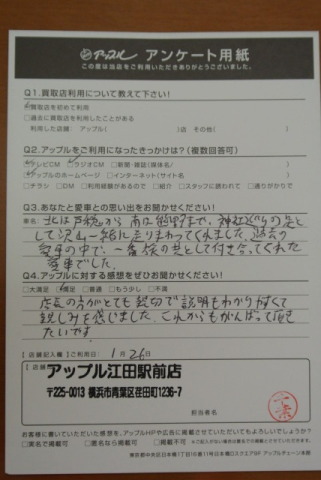 アップル アンケート用紙
この度は当店をご利用いただきありがとうございました。
Q1.買取店利用について教えて下さい!
買取店を初めて利用
□過去に買取店を利用したことがある
利用した店舗: アップル( )店 その他( )
Q2.アップルをご利用になったきっかけは?(複数回答可)
テレビCM ラジオCM □新聞・雑誌(媒体名/ )
アップルのホームページ □インターネット(サイト名 )
□チラシ □DM □利用経験があるので □紹介 □スタッフに誘われて □通りがかりで
Q3.あなたと愛車との思い出をお聞かせください!
車名: 北は戸隠から南は熊野まで、神社巡りの共と
して沢山一緒に走りまわってくれました。過去の
愛車の中で、一番旅の共として付き合ってくれた
愛車でした。
Q4.アップルに対する感想をぜひお聞かせください!
□大満足 満足 □普通 □もう少し □不満
店長の方がとても親切で説明もわかりやすくて
親しみを感じました。これからもがんばって頂き
たいです。
【店舗記入欄】【ご利用日: 1月26日
【店舗 アップル江田駅前店
〒225-0013 横浜市青葉区荏田町1236-7
担当者名
千葉
お客様に書いていただいた感想を、アップルHPや広告に掲載させていただいてもよろしいでしょうか?
□実名で掲載可 □匿名なら掲載可 □掲載不可 ※ご記入がない場合は匿名での掲載とさせていただきます。
東京都中央区日本橋1丁目16番11号日本橋Dスクエア9F アップルチェーン本部